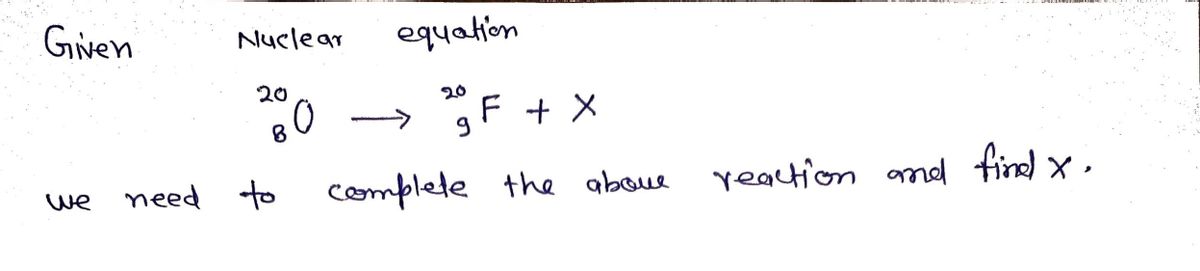 Given Nuclear equation
²⁰₈O → ²⁰₉F + X
we need to complete the above reaction and find X.